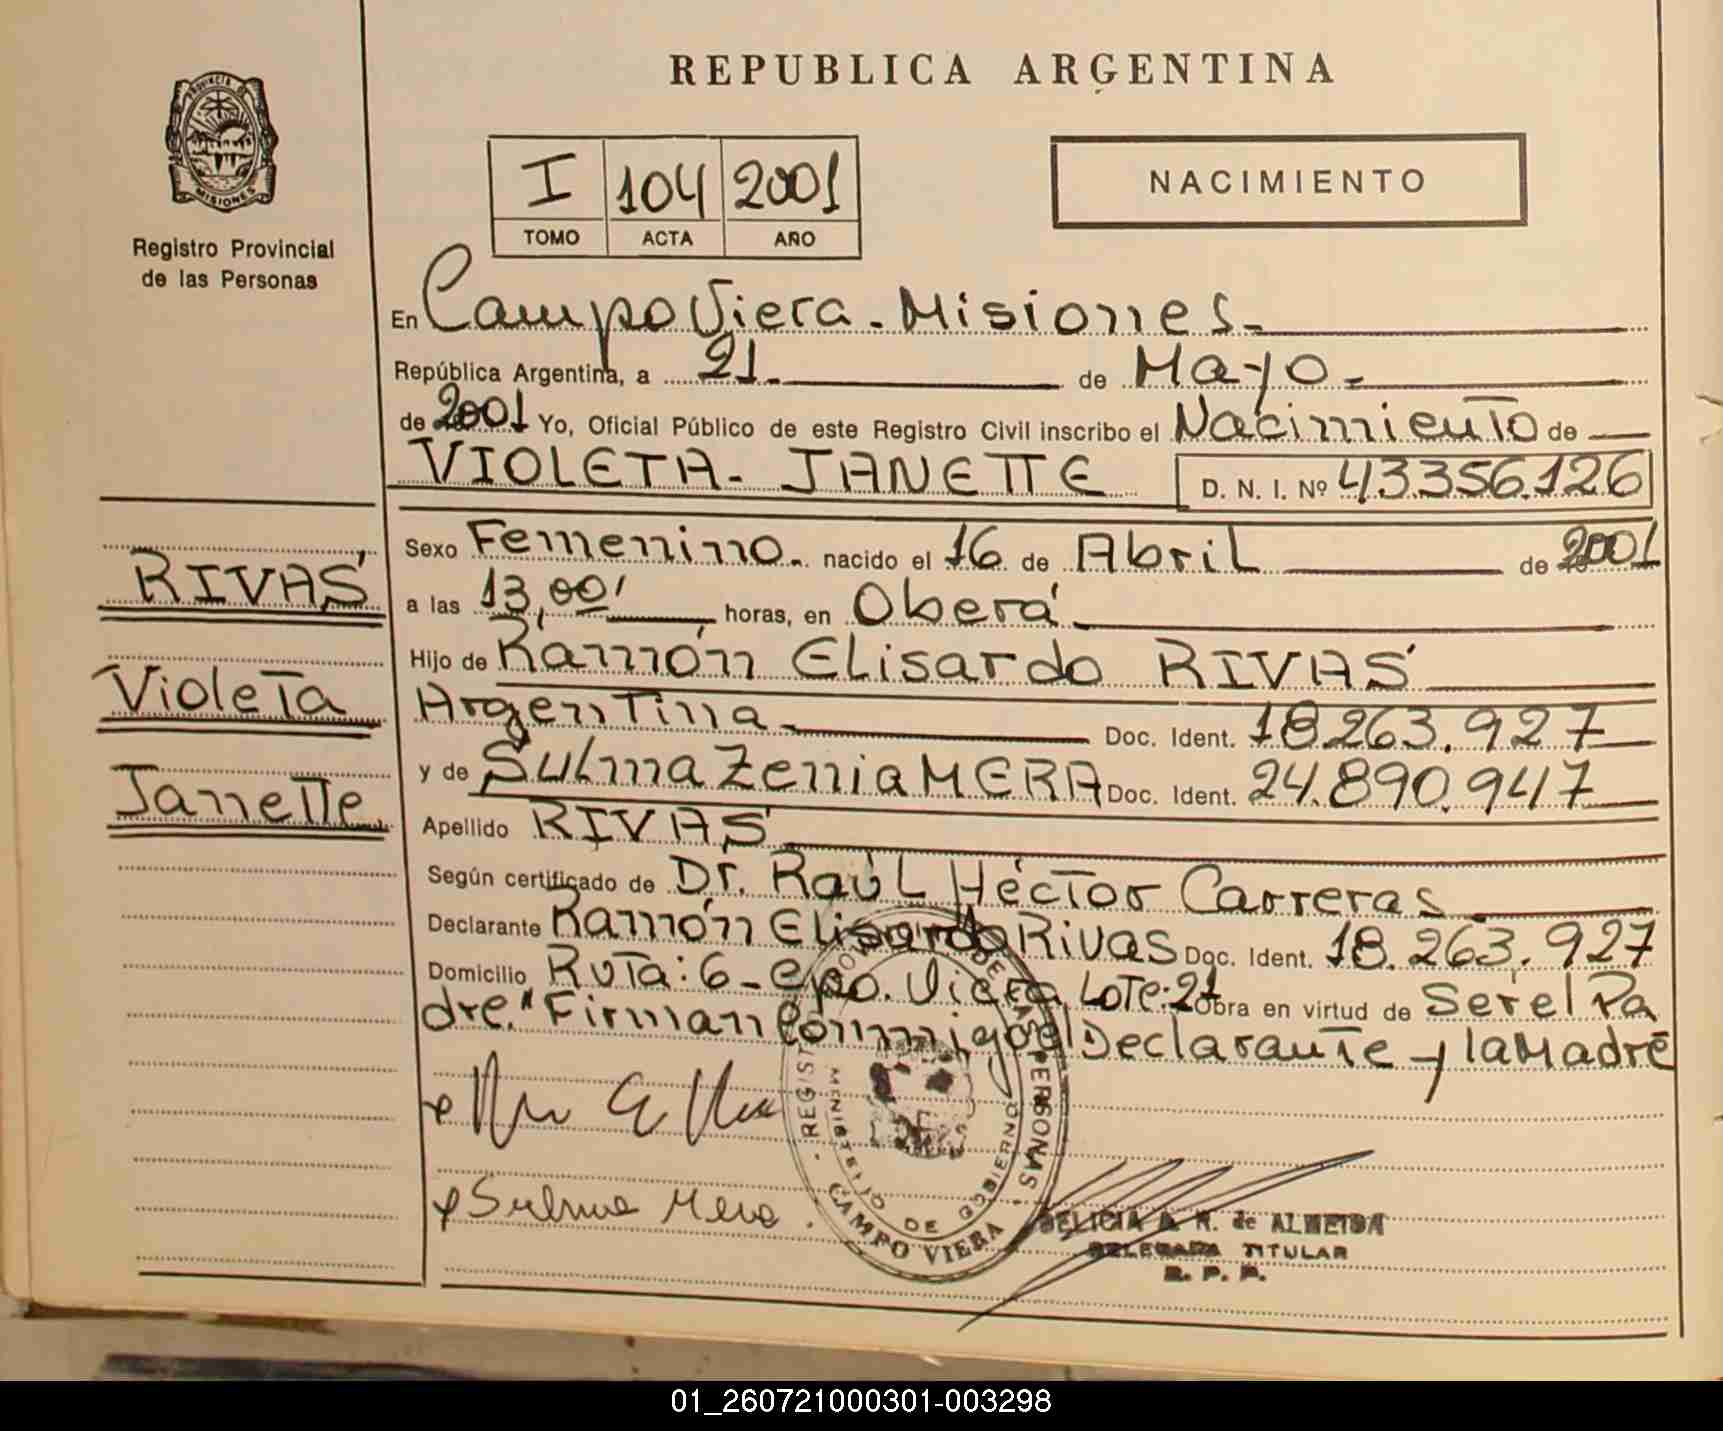 REPUBLICA ARGENTINA
PROVINCIA DE
MISIONES
Registro Provincial
de las Personas
I 104 2001
TOMO ACTA AÑO
NACIMIENTO
En Campo Viera - Misiones -
República Argentina, a 21 - de Mayo -
de 2001 Yo, Oficial Público de este Registro Civil inscribo el Nacimiento de
VIOLETA - JANETTE D. N. I. Nº 43.356.126
RIVAS
Violeta
Janette
Sexo Femenino - nacido el 16 de Abril de 2001
a las 13,00' horas, en Oberá
Hijo de Ramón Elisardo RIVAS
Argentina - Doc. Ident. 18.263.927
y de Sulma Zenia MERA Doc. Ident. 24.890.947
Apellido RIVAS
Según certificado de Dr. Raúl Héctor Carreras
Declarante Ramón Elisardo Rivas Doc. Ident. 18.263.927
Domicilio Ruta: 6 - Cpo. Viera Lote: 21 Obra en virtud de Ser el Pa
dre." Firman Conmigo el Declarante y la Madre
Sulma Mera
MINISTERIO DE GOBIERNO
CAMPO VIERA
DELICIA A. R. de ALMEIDA
DELEGADA TITULAR
R. P. P.
01_260721000301-003298